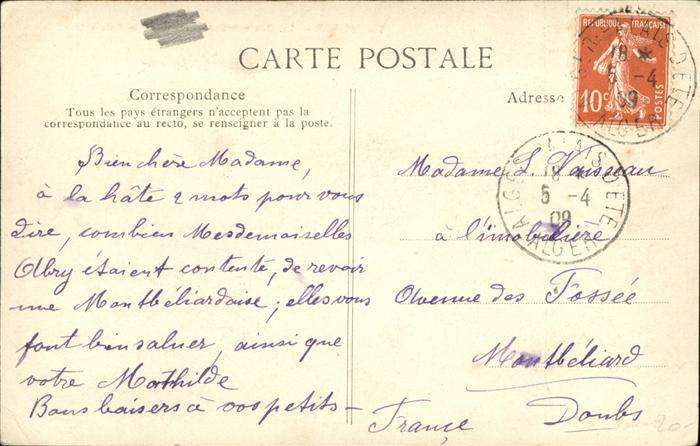 CARTE POSTALE
Correspondance
Tous les pays étrangers n'acceptent pas la
correspondance au recto, se renseigner à la poste.
Adresse
Bien chère Madame,
à la hâte 2 mots pour vous
dire, combien Mesdemoiselles
Abry étaient contente, de revoir
une Montbéliardaise; elles vous
font bien saluer, ainsi que
votre Mathilde
Bons baisers à vos petits-
Madame L.
à l'imobiliére
Avenue des Fossée
Montbéliard
Doubs
France
REPUBLIQUE FRANÇAISE
10c
POSTES
18 *
5 -4
09
D'ETE
ALGER
ALGER D'ETE
18
5 -4
09
ALGER
20-